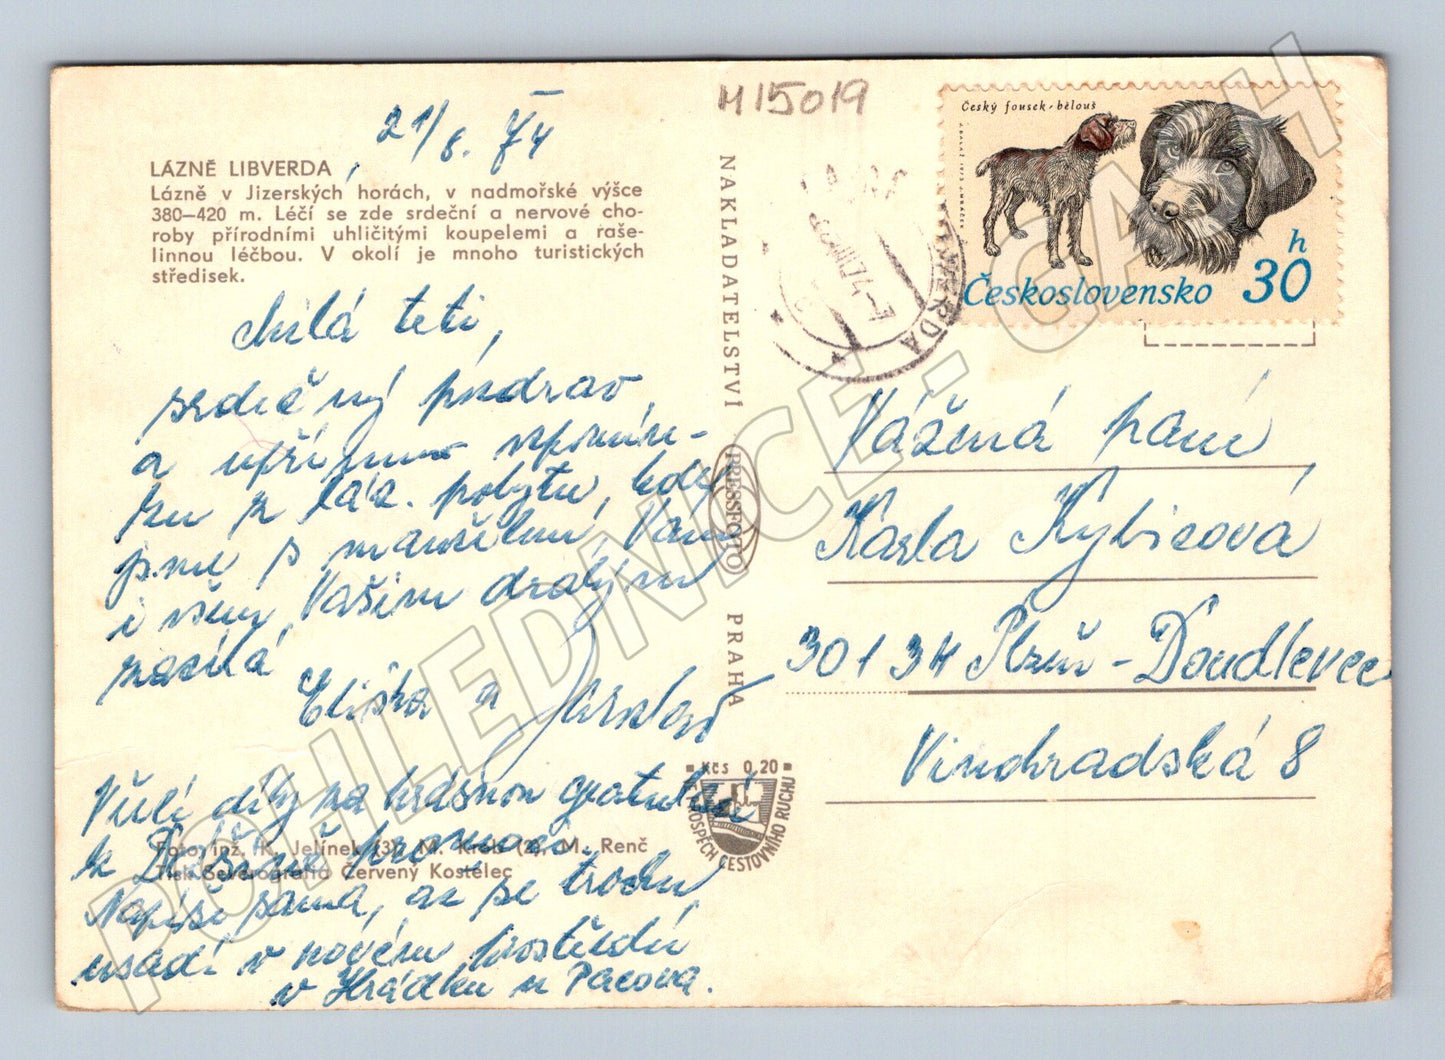 M15019
21/6. 74
LÁZNĚ LIBVERDA
Lázně v Jizerských horách, v nadmořské výšce
380–420 m. Léčí se zde srdeční a nervové cho-
roby přírodními uhličitými koupelemi a raše-
linnou léčbou. V okolí je mnoho turistických
středisek.
Milá teti,
srdečný pozdrav
a upřímnou vzpomín-
ku z láz. pobytu, kde
jsme s manželem, Vám
i všem Vašim drahým
posílá
Eliška a Jaroslav
Vřelí díky za krásnou gratulaci
k promoci.
Napíši sama, až se trochu
usadí v novém prostředí
v Hrádku u Pacova.
Foto: inž. K. Jelínek (3), M. Krob (2), M. Renč
Tisk Severografia Červený Kostelec
NAKLADATELSTVÍ
PRESSFOTO
PRAHA
Kčs 0,20
VE PROSPĚCH CESTOVNÍHO RUCHU
Český fousek - bělouš
Československo 30 h
LIBVERDA
Vážená paní
Karla Kybicová
301 34 Plzeň - Doudlevce
Vinohradská 8
POHLEDNICE - CASH